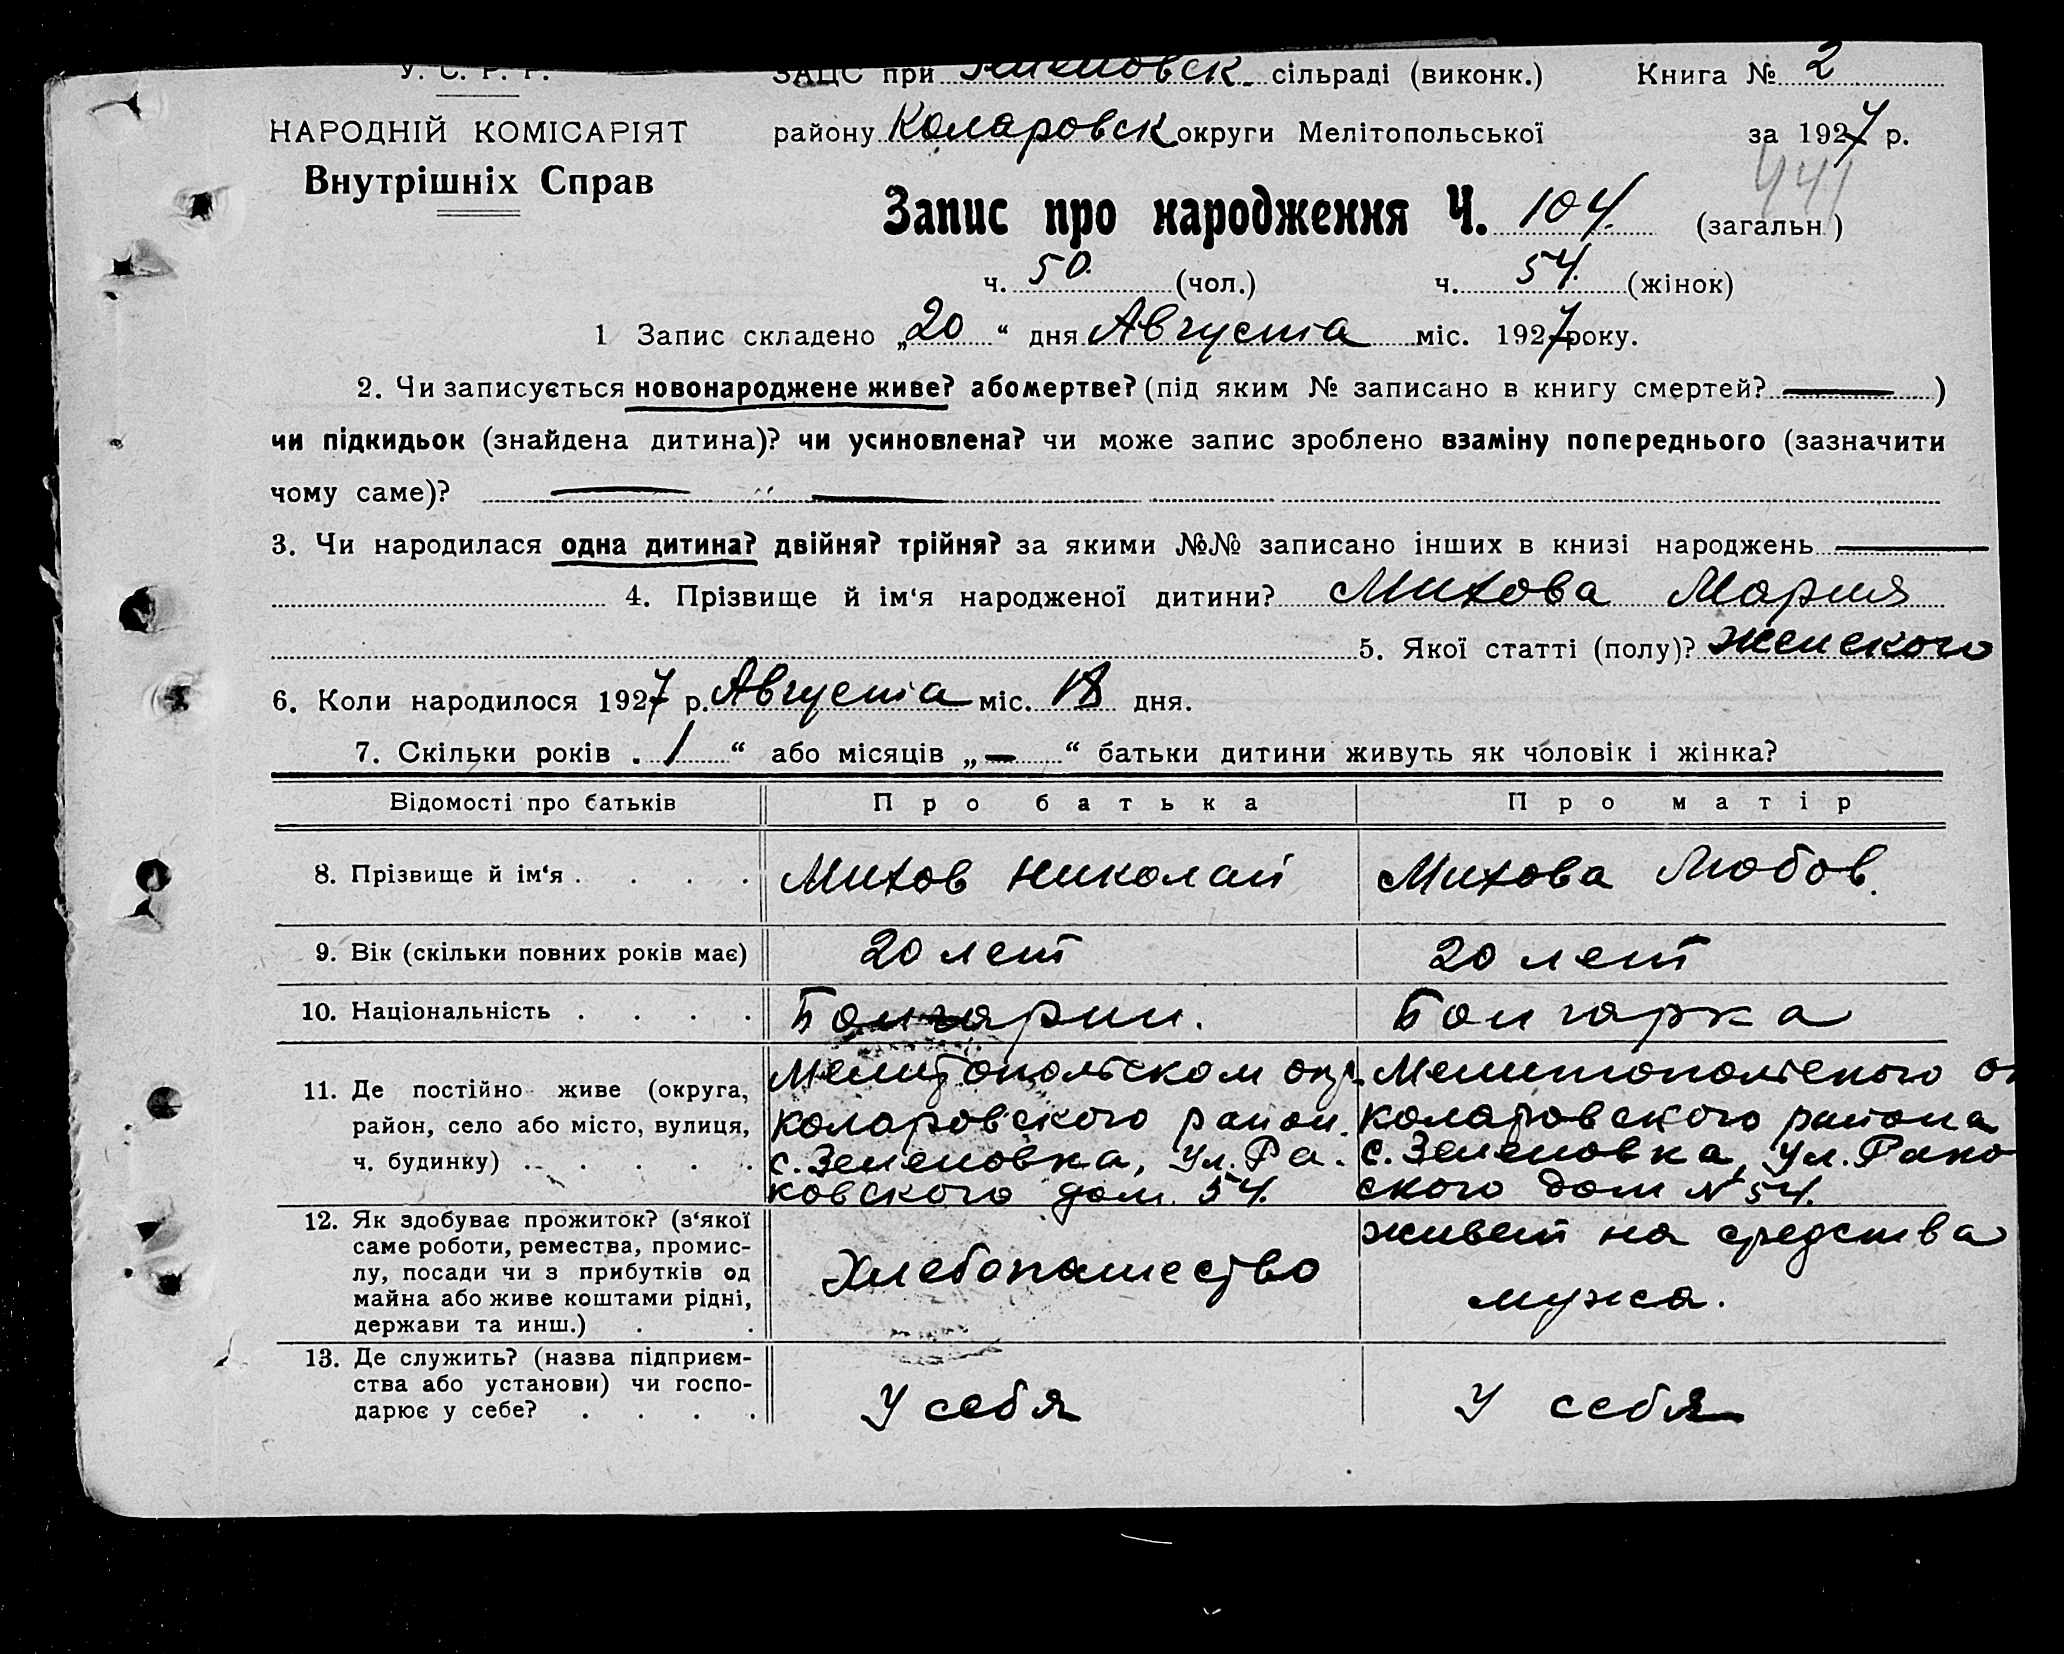 У. С. Р. Р. ЗАЦС при сільраді (виконк.) Книга № 2
НАРОДНІЙ КОМІСАРІЯТ району Коларовск округи Мелітопольської за 1927 р.
Внутрішніх Справ 441
Запис про народження Ч. 104. (загальн.)
ч. 50. (чол.) ч. 54. (жінок)
1 Запис складено „20“ дня Августа міс. 1927 року.
2. Чи записується новонароджене живе? або мертве? (під яким № записано в книгу смертей? — )
чи підкидьок (знайдена дитина)? чи усиновлена? чи може запис зроблено взаміну попереднього (зазначити
чому саме)? — —
3. Чи народилася одна дитина? двійня? трійня? за якими №№ записано інших в книзі народжень —
4. Прізвище й ім‘я народженої дитини? Михова Мария
5. Якої статті (полу)? женского
6. Коли народилося 1927 р. Августа міс. 18 дня.
7. Скільки років . 1 “ або місяців „ — “ батьки дитини живуть як чоловік і жінка?
Відомості про батьків Про батька Про матір
8. Прізвище й ім‘я . . . . Михов Николай Михова Любов.
9. Вік (скільки повних років має) 20 лет 20 лет
10. Національність . . . . Болгарин. Болгарка
11. Де постійно живе (округа, Мелитопольском окр. Мелитопольского ок
район, село або місто, вулиця, Коларовского район. Коларовского района
ч. будинку) . . . . . с. Зеленовка, Ул. Ра- с. Зеленовка, Ул. Рако
ковского дом. 54. ского дом № 54.
12. Як здобуває прожиток? (з‘якої живет на средства
саме роботи, ремества, промис-
лу, посади чи з прибутків од Хлебопашество
майна або живе коштами рідні, мужа.
держави та инш.) . .
13. Де служить? (назва підприєм-
ства або установи) чи госпо- У себя У себя
дарює у себе? . . . .